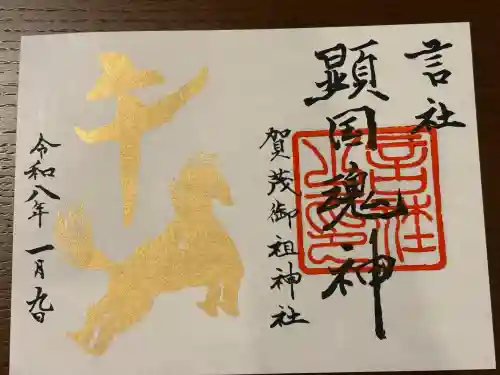 言社
顕国魂神
賀茂御祖神社
午
令和八年 一月九日
言社之印